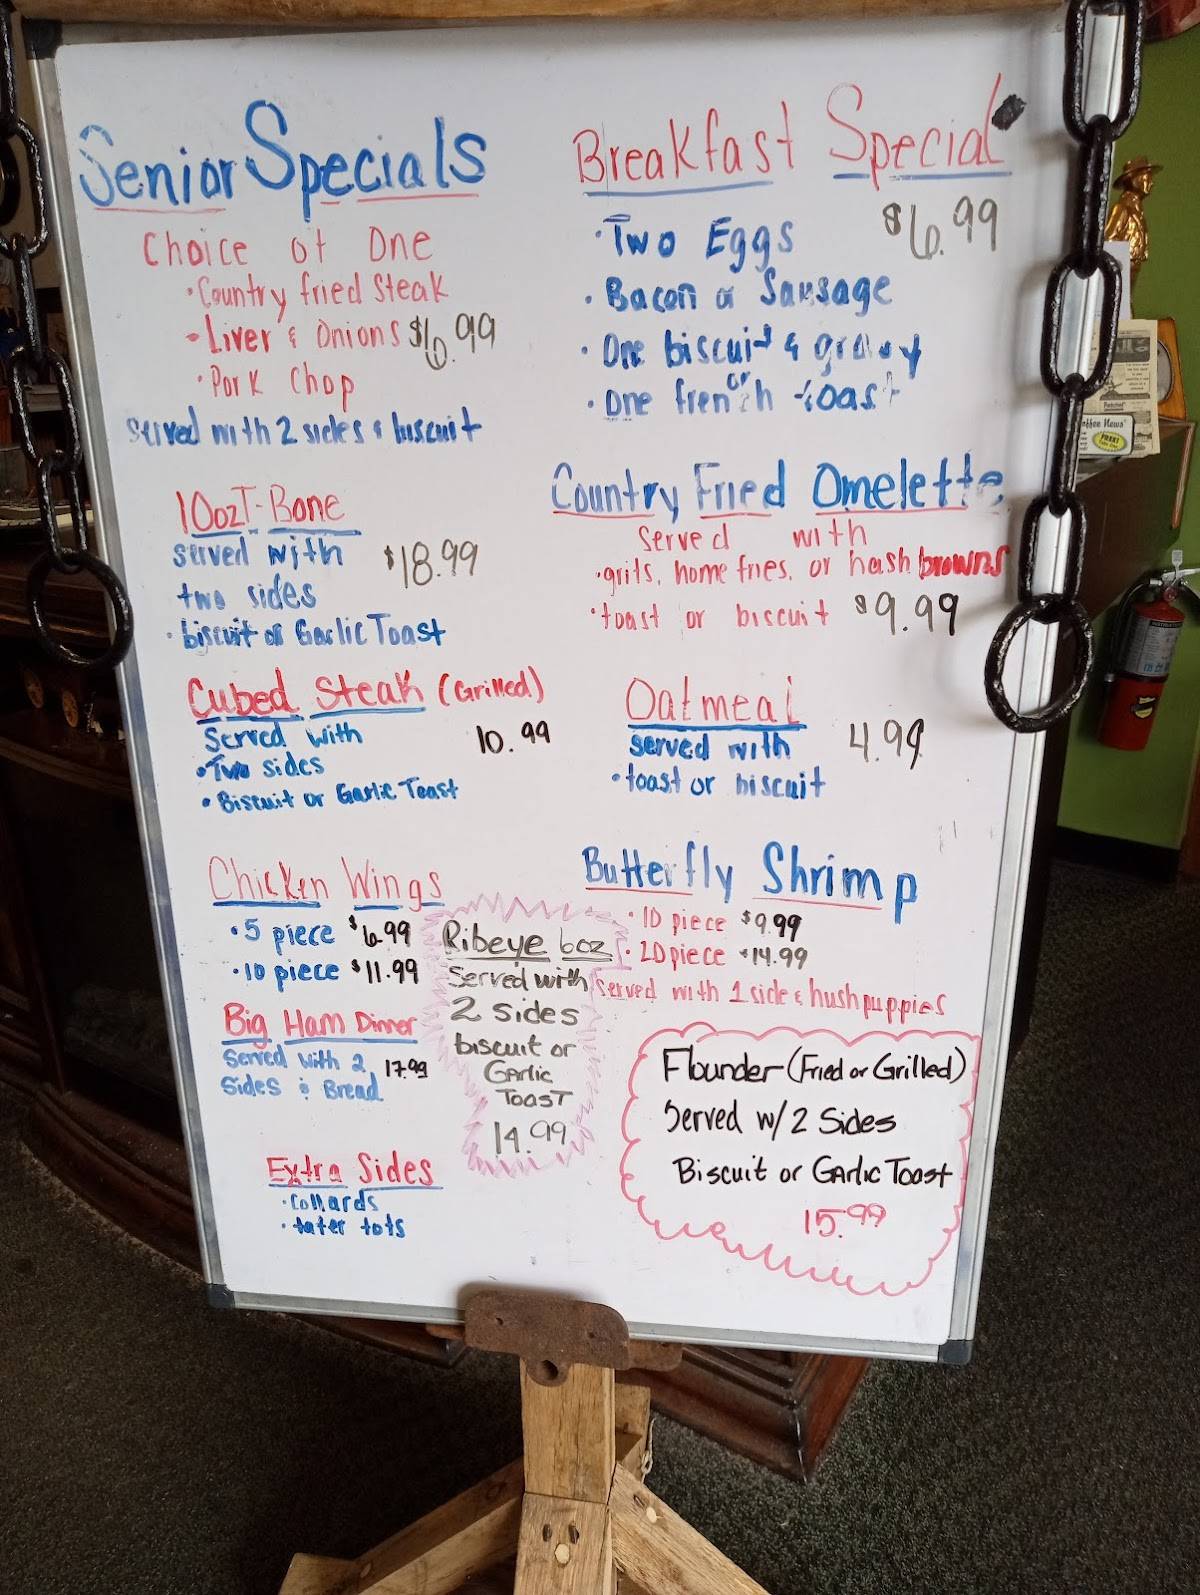 Senior Specials
Choice of One
• Country fried steak
• Liver & Onions $6.99
• Pork Chop
Served with 2 sides & biscuit
10oz T-Bone
served with
two sides
$18.99
• biscuit or Garlic Toast
Cubed Steak (Grilled)
Served with
10.99
• Two sides
• Biscuit or Garlic Toast
Chicken Wings
• 5 piece $6.99
• 10 piece $11.99
Big Ham Dinner
Served with 2
17.99
Sides & Bread
Extra Sides
• Collards
• tater tots
Ribeye 6oz
Served with
2 sides
biscuit or
Garlic
Toast
14.99
Breakfast Special
• Two Eggs $6.99
• Bacon or Sausage
• One biscuit & gravy
or
• One french toast
Country Fried Omelette
Served with
• grits, home fries, or hash browns
• toast or biscuit $9.99
Oatmeal
served with 4.99
• toast or biscuit
Butterfly Shrimp
• 10 piece $9.99
• 20 piece $14.99
Served with 1 side & hushpuppies
Flounder (Fried or Grilled)
Served w/ 2 Sides
Biscuit or Garlic Toast
15.99
Coffee News
FREE!